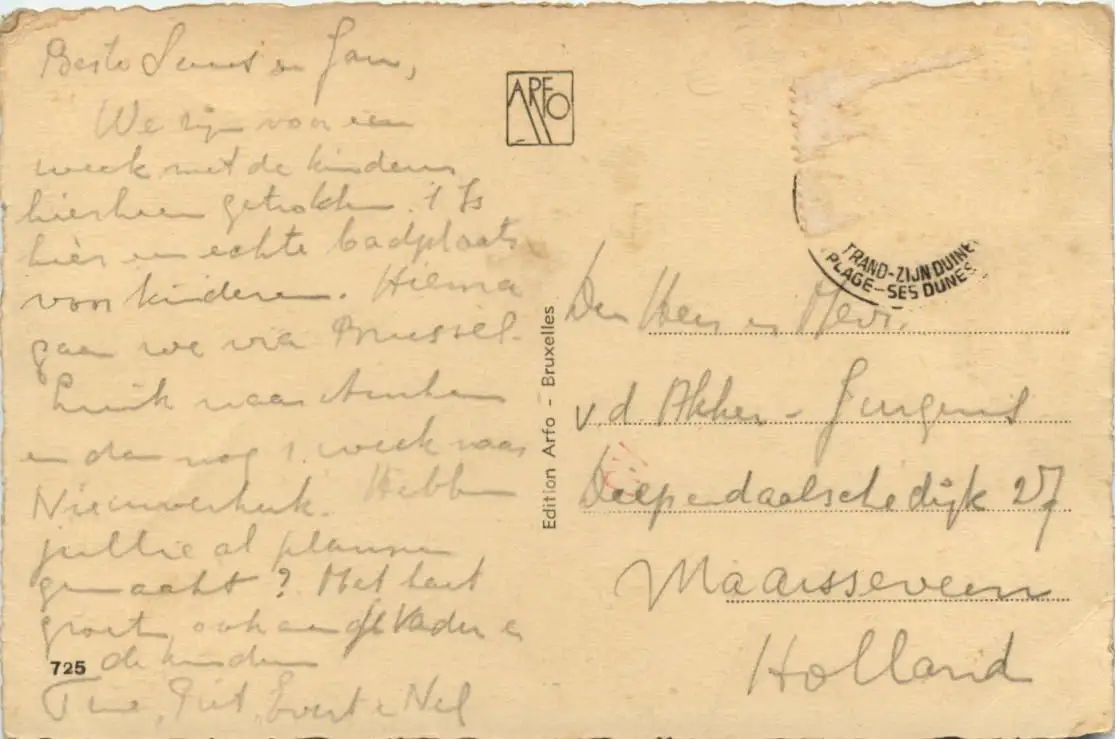 Beste Sunis en Jan,
We zijn voor een
week met de kinderen
hierheen getrokken. 't Is
hier een echte badplaats
voor kinderen. Hierna
gaan we via Brussel-
Luik naar Arnhem
en dan nog 1 week naar
Nieuwerkerk. Hebben
jullie al plannen
gemaakt? Met hart
groet, ook aan Vader en
de kinderen
Tine, Piet, Evert e Nel
725
ARFO
Edition Arfo - Bruxelles
TRAND-ZIJN DUINE
PLAGE-SES DUNES
Den Heer en Mevr.
v.d Akker - Jurgens
Diependaalschedijk 27
Maarsseveen
Holland